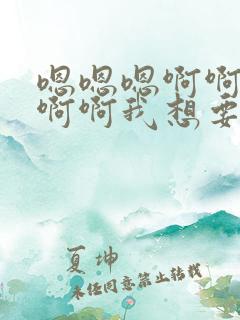 嗯嗯嗯啊啊
啊啊我想要
夏坤
未经同意禁止转载